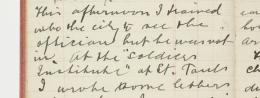 This afternoon I trained
into the city to see the
optician but he was not
in. At the "Soldiers
Institute" at St. Pauls
I wrote some letters